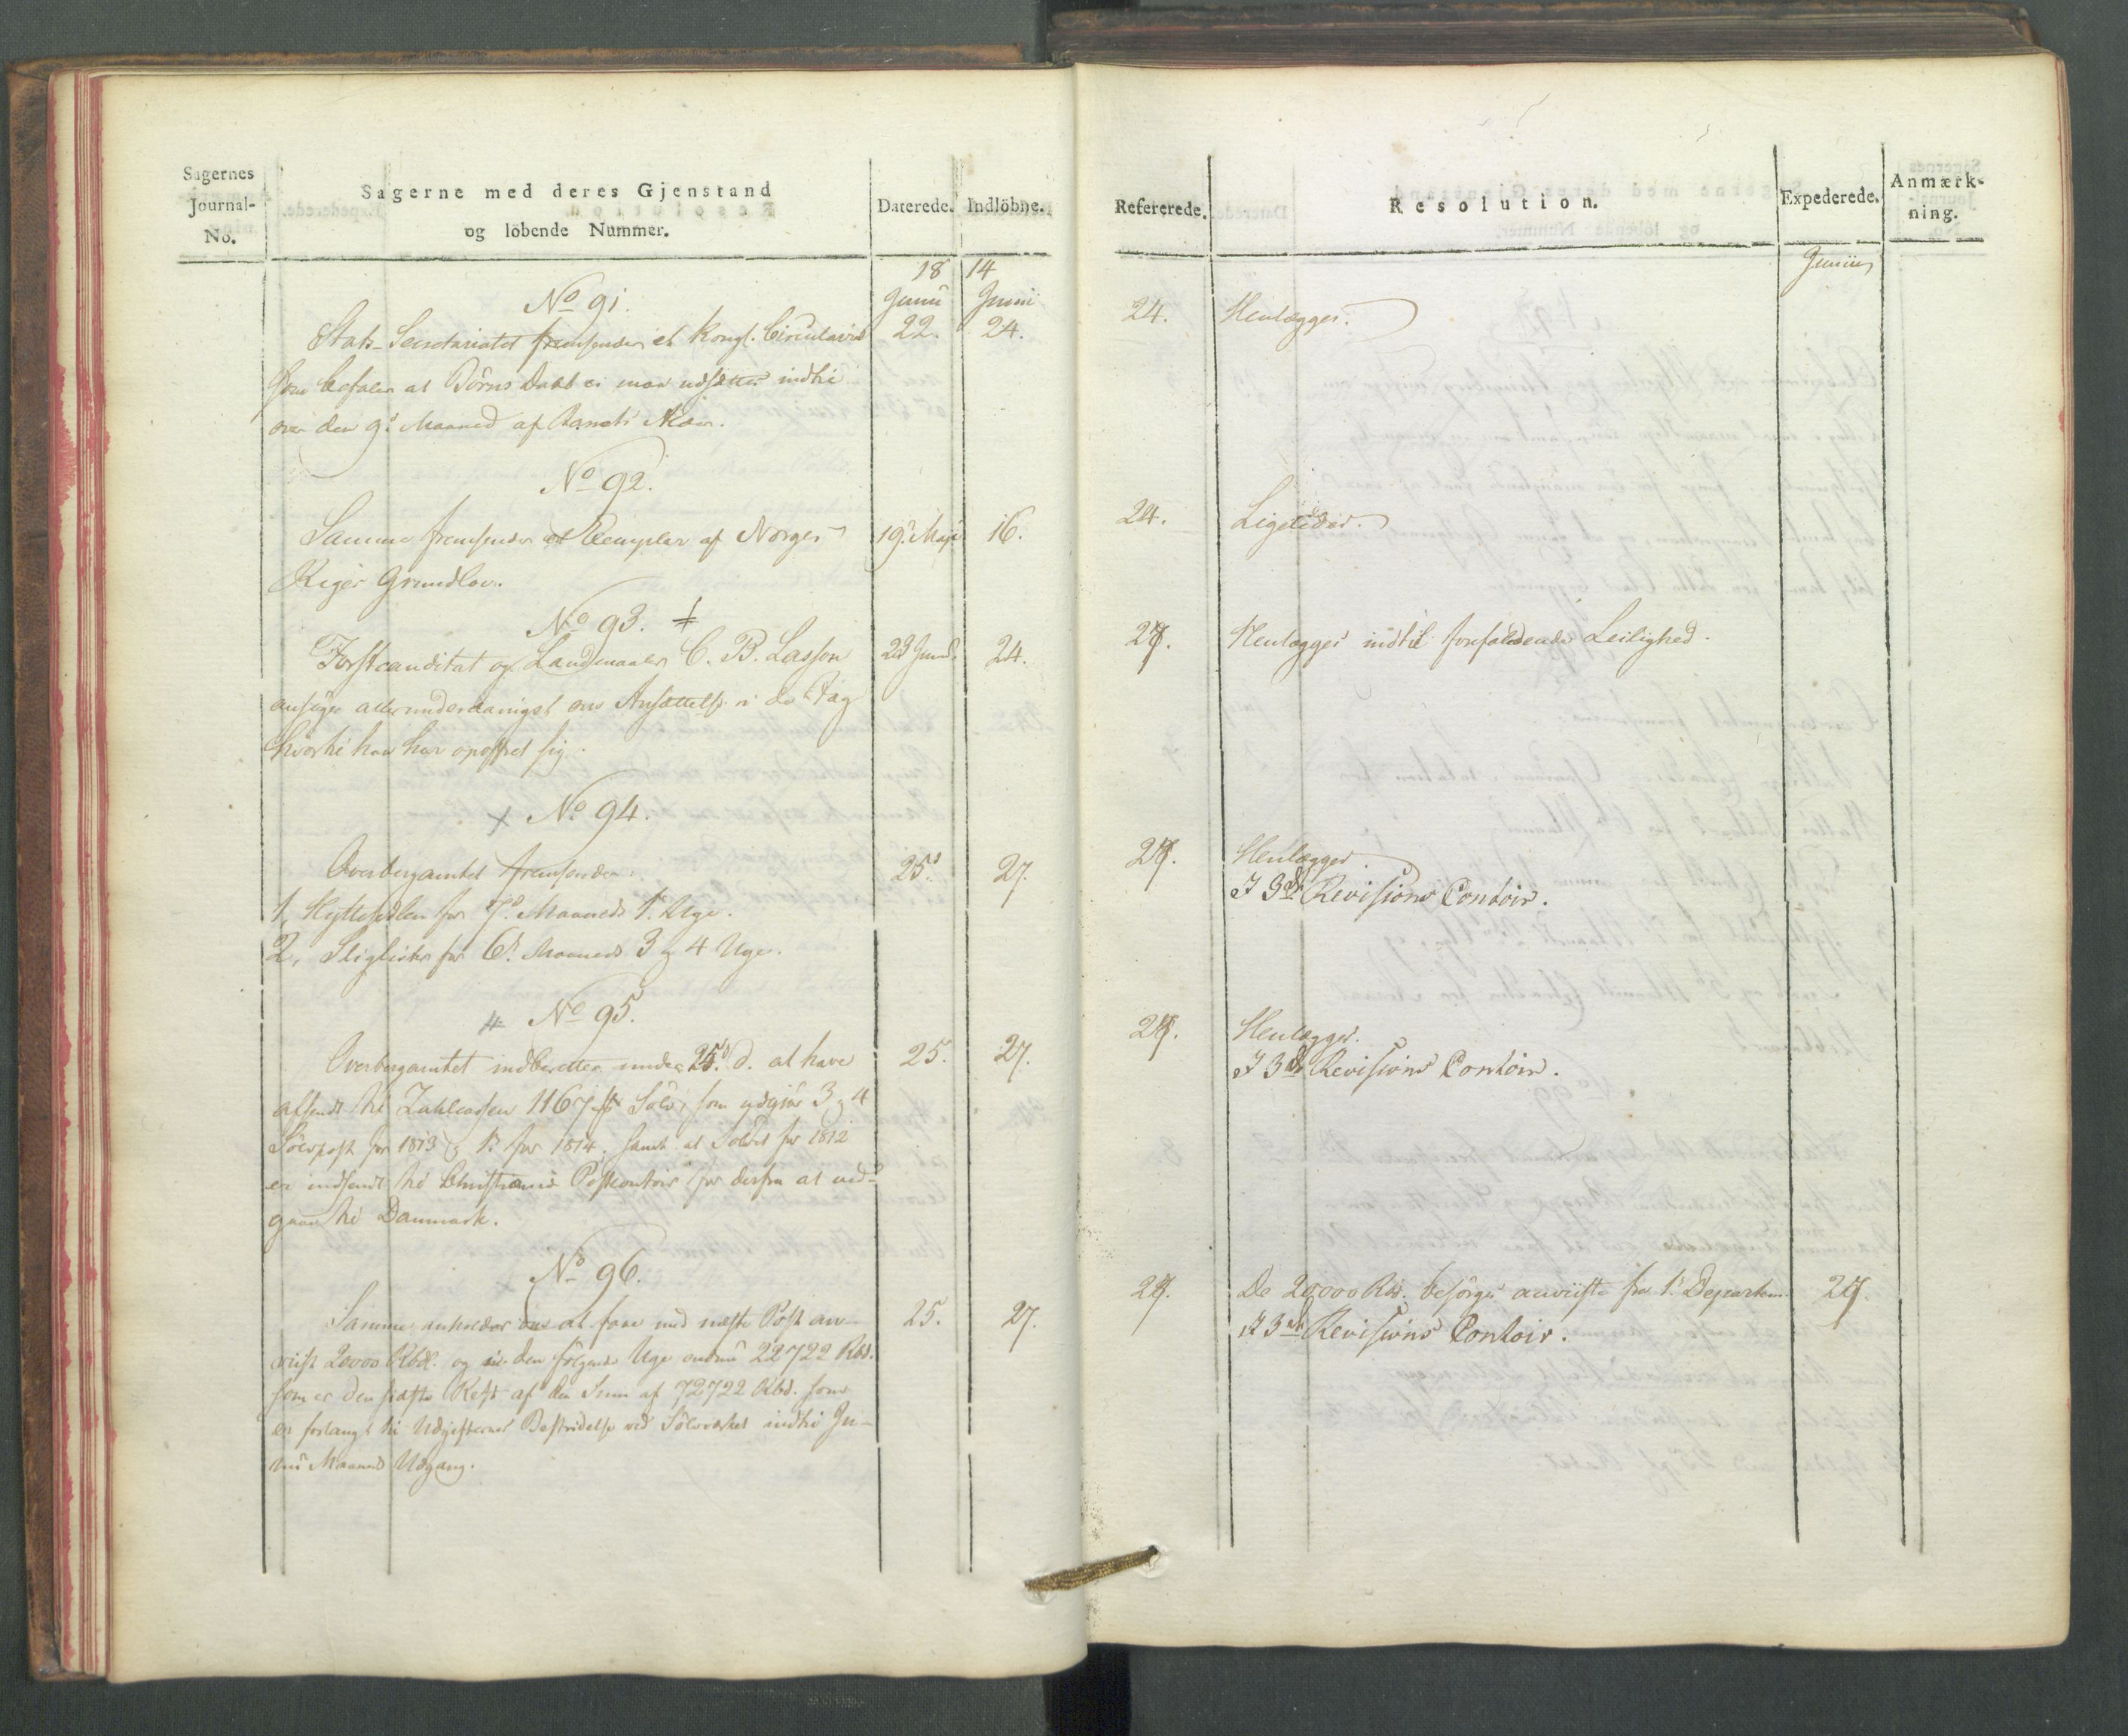 Sagernes
Journal-
No.
Sagerne med deres Gjenstand
og löbende Nummer.
Daterede.
Indlöbne.
18
14
Junii
Junii
No 91.
Stats-Secretariatet fremsender et Kongl. Circulaire
22.
24.
som befaler at Börns Daab ei maa udsættes indtil
over den 9de Maaned af Barnets Alder.
No 92.
Samme fremsender et Exemplar af Norges
19de Maji
16.
Riges Grundlov.
No 93.
Forstcanditat og Landmaaler C. B. Lasson
23 Junii
24.
ansöger allerunderdanigst om Ansættelse i det Fag
hvortil han har opoffret sig.
No 94.
Overbergamtet fremsender:
25.
27.
1, Hyttesedlen for 7de Maaneds 1ste Uge.
2, Sliglister for 6te Maaneds 3 og 4 Uge.
No 95.
Overbergamtet indberetter under 25. d. at have
25.
27.
afsendt til Zahlcassen 1167 Sölv, som udgjör 3 og 4
Sölvpost for 1813 og 1ste for 1814, samt at Sölvet for 1812
er indsendt til Christiania Postcontoir for derfra at ned-
gaae til Danmark.
No 96.
Samme anholder om at faae med næste Post an-
25.
27.
viist 20000 Rbd. og in den fölgende Uge endnu 22722 Rbd.
som er den sidste Rest af den Sum af 72722 Rbd. som
er forlangt til Udgifternes Bestridelse ved Sölvværket indtil Ju-
nii Maaneds Udgang.
Refererede.
Resolution.
Expederede.
Anmærk-
ning.
Junius
24.
Henlægges.
24.
Ligeledes.
Henlægges indtil forefaldende Leilighed.
Henlægges.
I 3de Revisions Contoir.
Henlægges.
I 3de Revisions Contoir.
De 20,000 Rbd. besörges anviiste fra 1ste Departem.
I 3de Revisions Contoir.